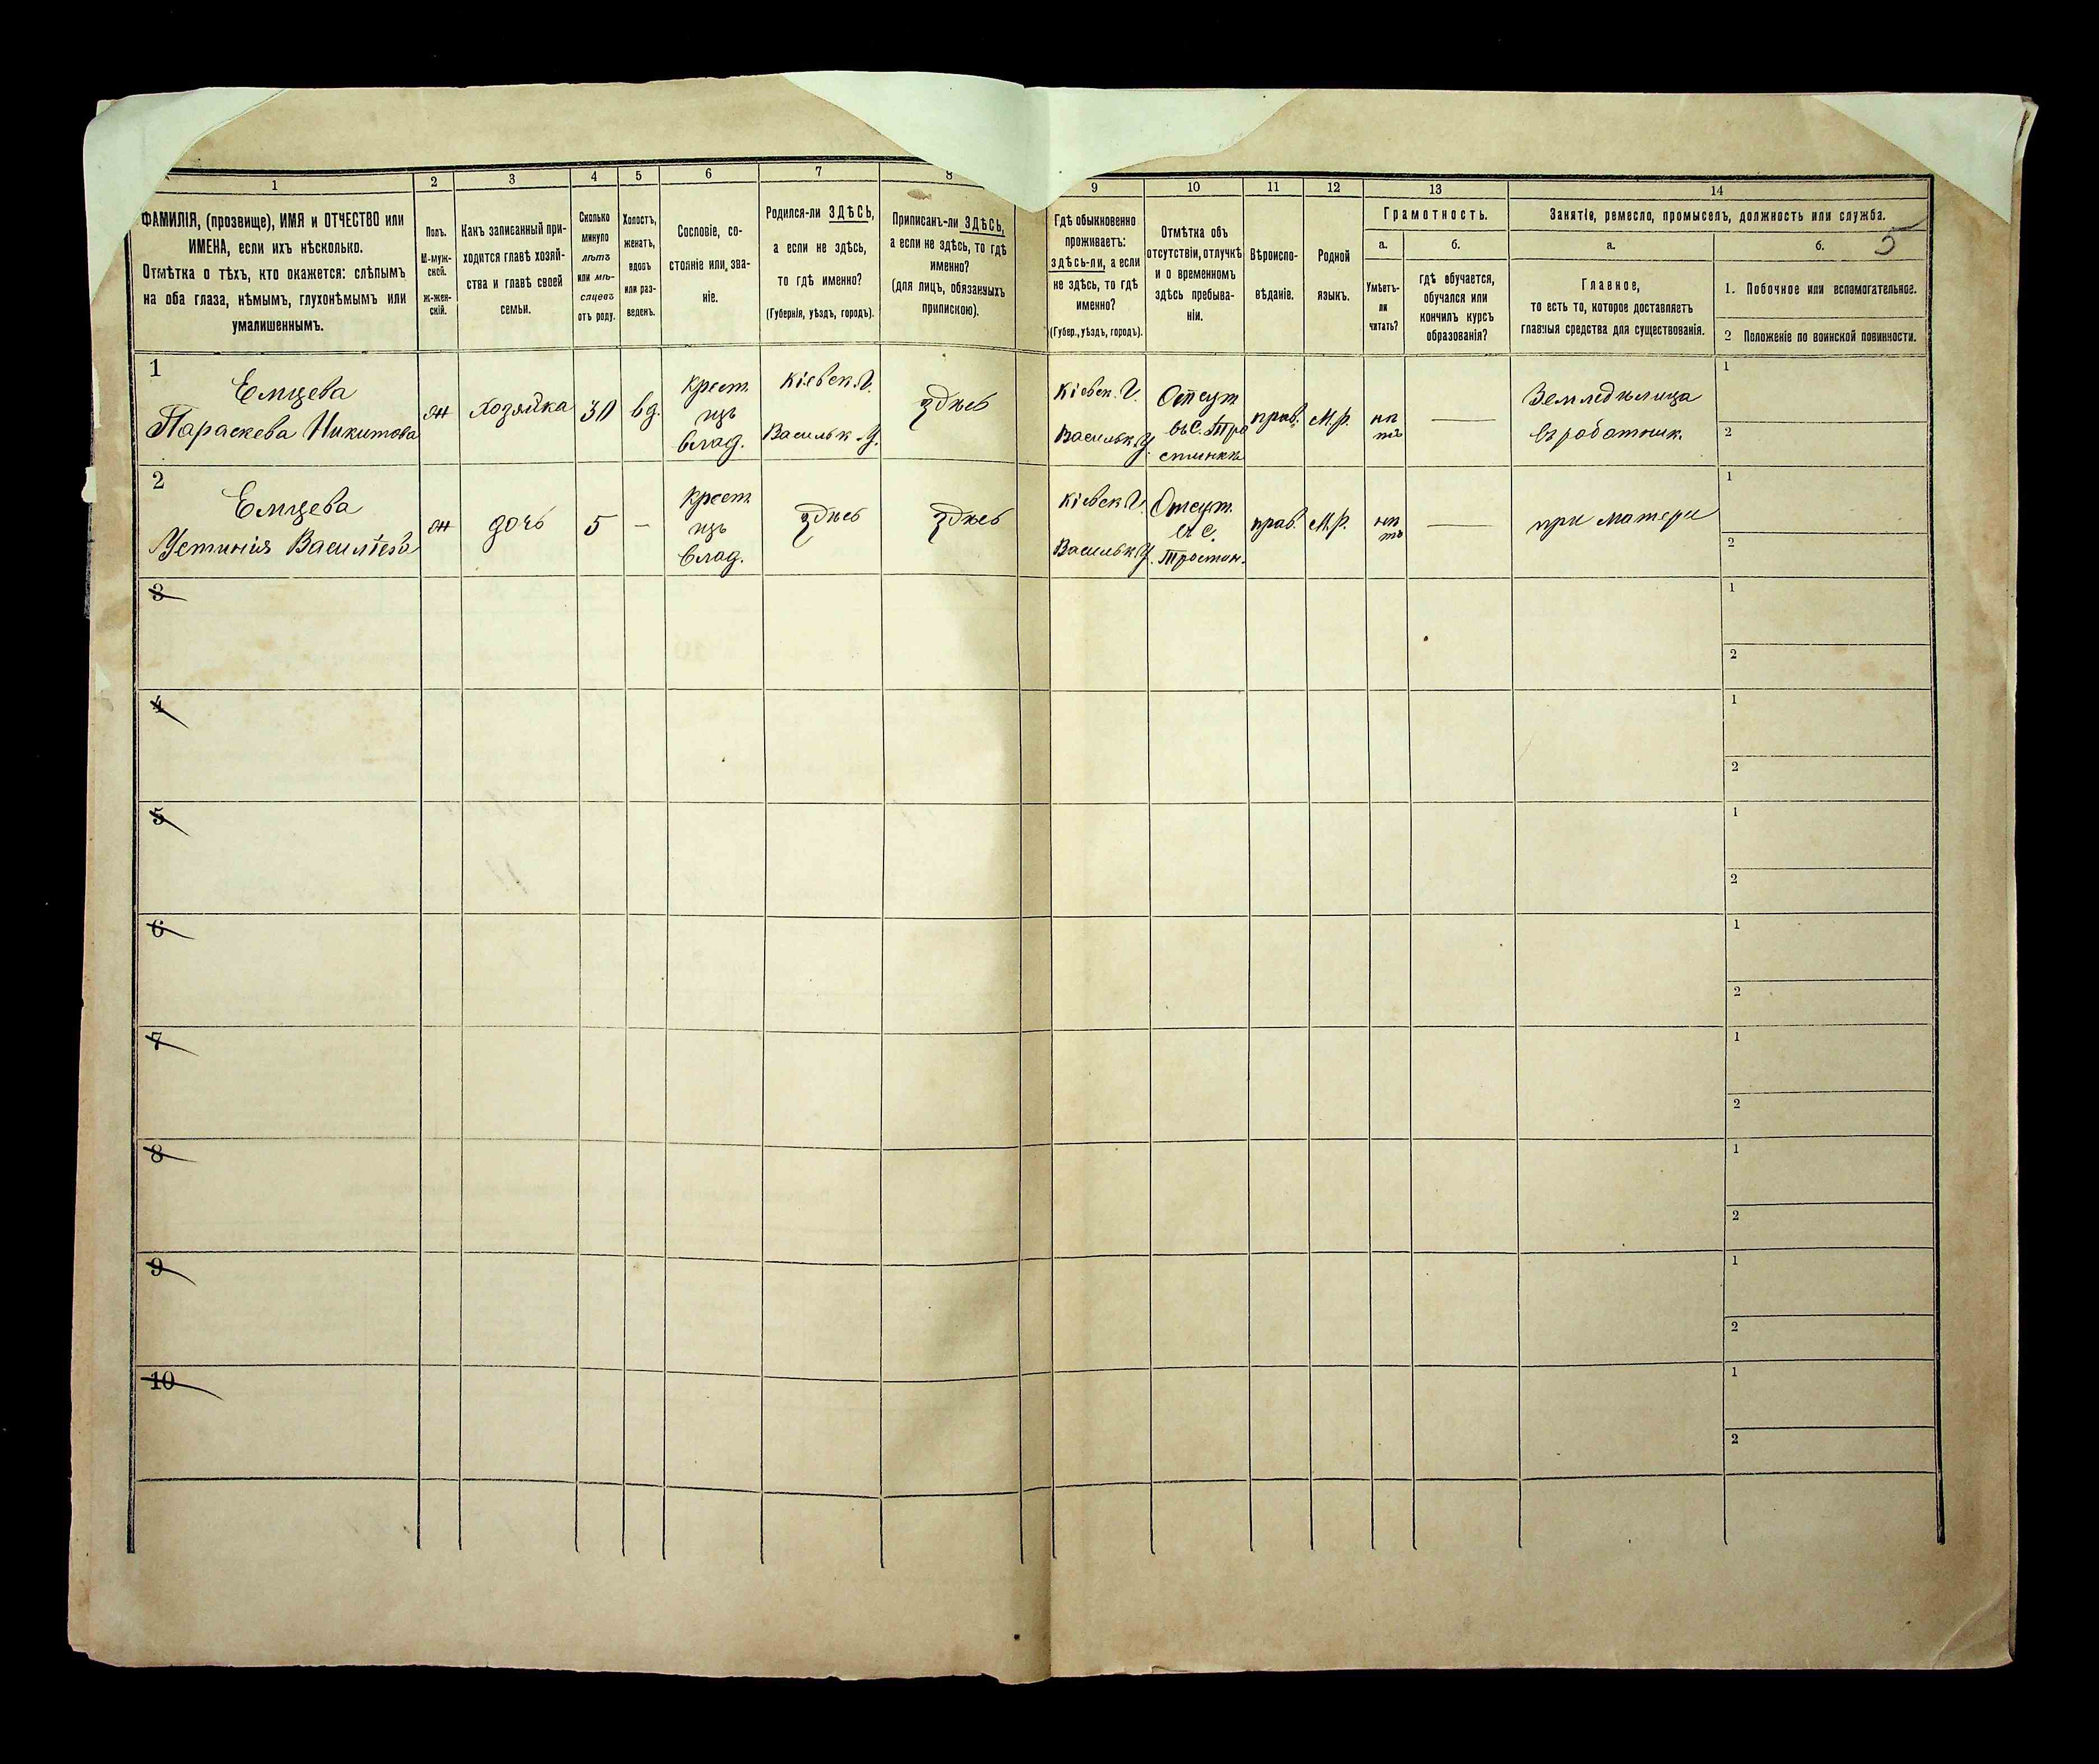 1 2 3 4 5 6 7 8 9 10 11 12 13 14
ФАМИЛІЯ, (прозвище), ИМЯ и ОТЧЕСТВО или
ИМЕНА, если ихъ нѣсколько.
Отмѣтка о тѣхъ, кто окажется: слѣпымъ
на оба глаза, нѣмымъ, глухонѣмымъ или
умалишеннымъ.
Полъ.
М-муж-
ской.
Ж-жен-
скій.
Какъ записанный при-
ходится главѣ хозяй-
ства и главѣ своей
семьи.
Сколько
минуло
лѣтъ
или мѣ-
сяцевъ
отъ роду.
Холостъ,
женатъ,
вдовъ
или раз-
веденъ.
Сословіе, со-
стояніе или зва-
ніе.
Родился-ли ЗДѢСЬ,
а если не здѣсь,
то гдѣ именно?
(Губернія, уѣздъ, городъ).
Приписанъ-ли ЗДѢСЬ,
а если не здѣсь, то гдѣ
именно?
(для лицъ, обязанныхъ
припискою).
Гдѣ обыкновенно
проживаетъ:
здѣсь-ли, а если
не здѣсь, то гдѣ
именно?
(Губер., уѣздъ, городъ).
Отмѣтка объ
отсутствіи, отлучкѣ
и о временномъ
здѣсь пребыва-
ніи.
Вѣроиспо-
вѣданіе.
Родной
языкъ.
Грамотность.
а.
Умѣетъ-
ли
читать?
б.
гдѣ обучается,
обучался или
кончилъ курсъ
образованія?
Занятіе, ремесло, промыселъ, должность или служба.
5
а.
Главное,
то есть то, которое доставляетъ
главныя средства для существованія.
б.
1. Побочное или вспомогательное.
2 Положеніе по воинской повинности.
1
Емцева
Параскева Никитова
ж
хозяйка
30
вд.
крест.
изъ
влад.
Кіевск. Г.
Васильк. У.
здѣсь
Кіевск. Г.
Васильк. У.
Отсут
въ С. Тро
стинкѣ
прав.
М.р.
нѣ
тъ
—
Земледѣлица
въ работник.
1
2
2
Емцева
Устинія Васильева
ж
дочь
5
—
крест.
изъ
влад.
здѣсь
здѣсь
Кіевск Г.
Васильк. У.
Отсут.
въ С.
Тростин.
прав.
М.р.
нѣ
тъ
—
при матери
1
2
3
1
2
4
1
2
5
1
2
6
1
2
7
1
2
8
1
2
9
1
2
10
1
2